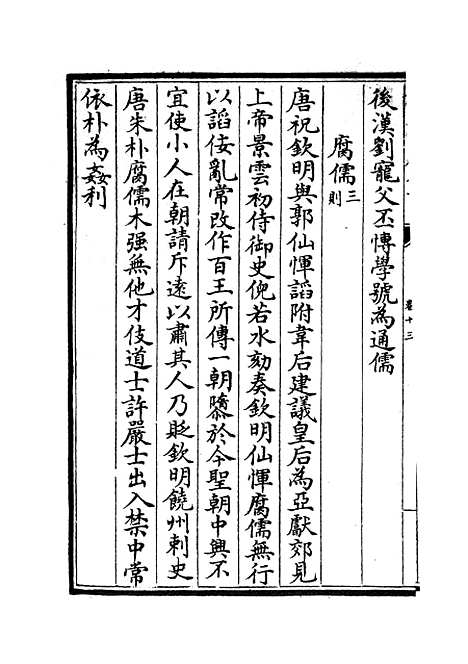 後漢劉寵父丕博學號為通儒
腐儒三則
唐祝欽明與郭仙惲謟附韋后建議皇后為亞獻郊見
上帝景雲初侍御史倪若水劾奏欽明仙惲腐儒無行
以謟佞亂常改作百王所傳一朝隳於今聖朝中興不
宜使小人在朝請斥遠以肅其人乃貶欽明饒州刺史
唐朱朴腐儒木强無他才伎道士許嚴士出入禁中常
依朴為姦利
卷十三